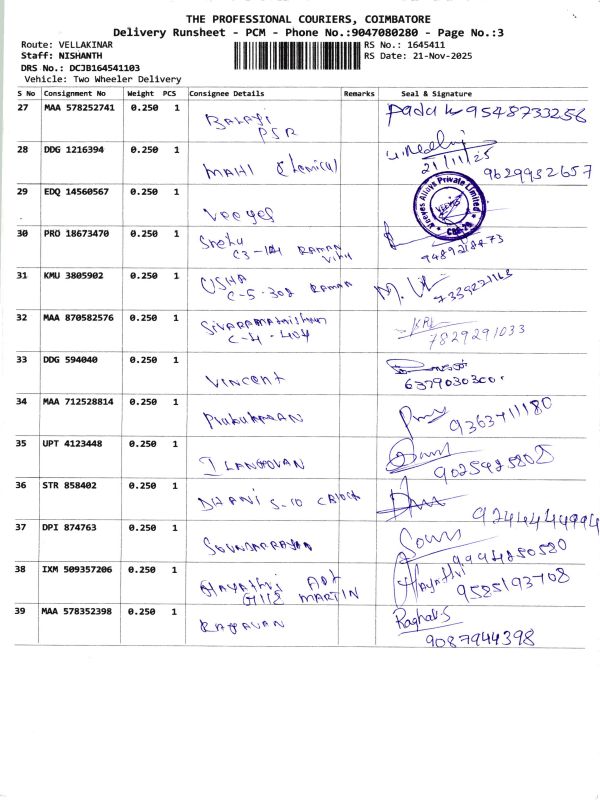 THE PROFESSIONAL COURIERS, COIMBATORE
Delivery Runsheet - PCM - Phone No.:9047080280 - Page No.:3
Route: VELLAKINAR RS No.: 1645411
Staff: NISHANTH RS Date: 21-Nov-2025
DRS No.: DCJB164541103
Vehicle: Two Wheeler Delivery
S No Consignment No Weight PCS Consignee Details Remarks Seal & Signature
27 MAA 578252741 0.250 1 BALAJI 9548733256
PSR
28 DDG 1216394 0.250 1 MAHI Chemical 21/11/25
9629932657
29 EDQ 14560567 0.250 1 Veeyes
Veeyes Alloys Private Limited
30 PRO 18673470 0.250 1 9489218473
31 KMU 3805902 0.250 1 USHA
C-5-308 RAMAN
32 MAA 870582576 0.250 1
C-4-404 7829291033
33 DDG 594040 0.250 1 VINCENT
6379030300
34 MAA 712528814 0.250 1 Prabakaran 9363711180
35 UPT 4123448 0.250 1 ILANGOVAN 9025925802
36 STR 858402 0.250 1 DHANI S-10 9244444994
37 DPI 874763 0.250 1 Soundarrajan 9994250520
38 IXM 509357206 0.250 1 GAYATHRI APT 9585193708
G112 MARTIN
39 MAA 578352398 0.250 1 RAGAVAN Raghav.S
9087944398